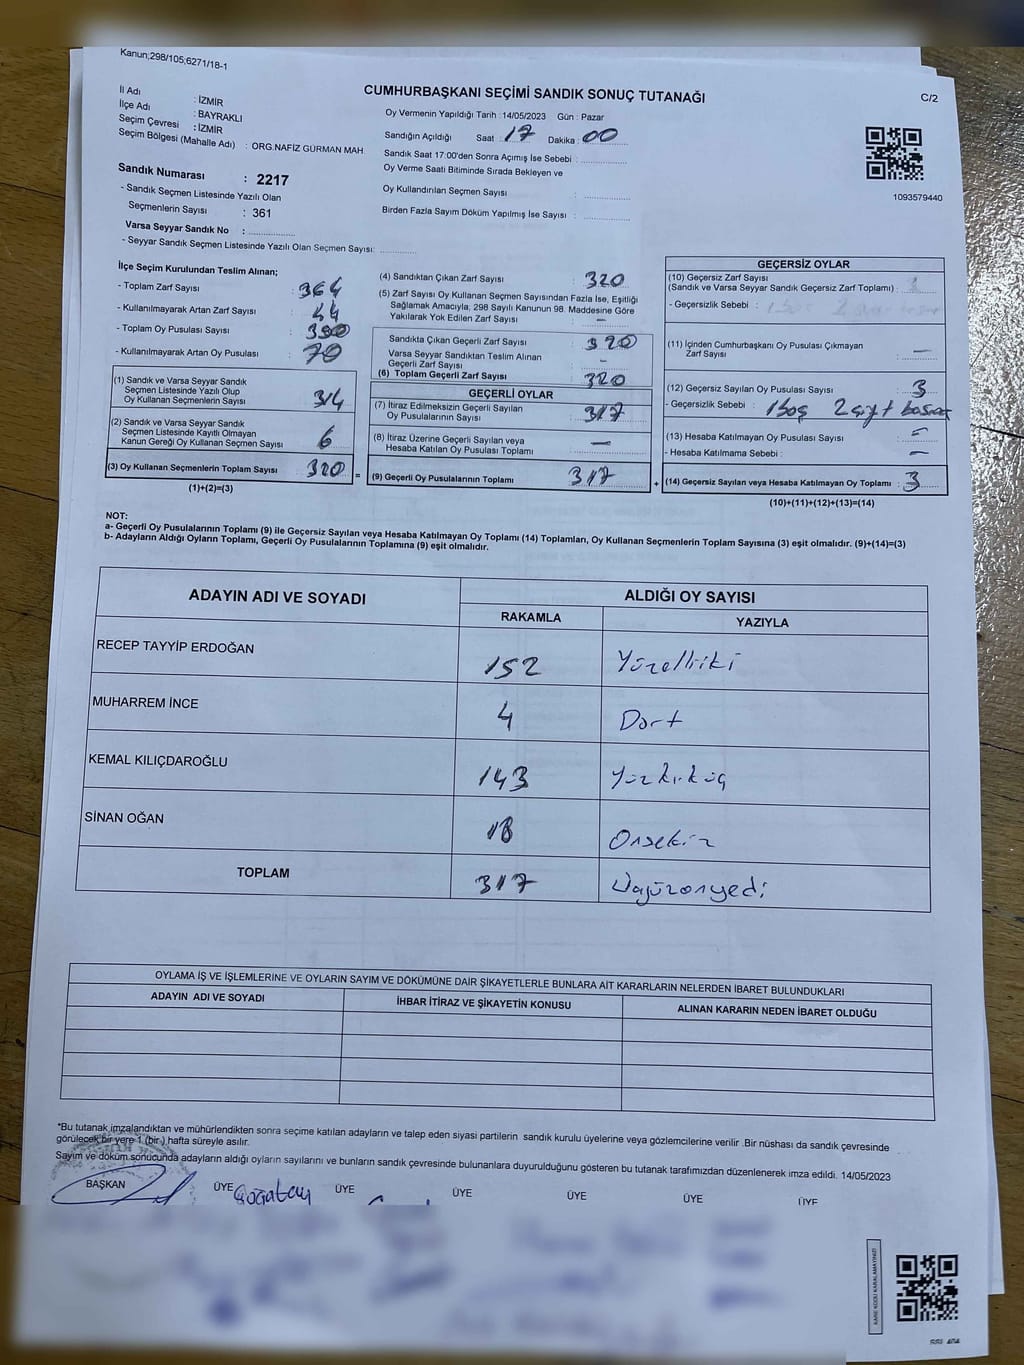 Kanun;298/105;6271/18-1
CUMHURBAŞKANI SEÇİMİ SANDIK SONUÇ TUTANAĞI
C/2
İl Adı : İZMİR
İlçe Adı : BAYRAKLI
Seçim Çevresi : İZMİR
Seçim Bölgesi (Mahalle Adı) : ORG.NAFİZ GÜRMAN MAH.
Sandık Numarası : 2217
- Sandık Seçmen Listesinde Yazılı Olan
Seçmenlerin Sayısı : 361
Varsa Seyyar Sandık No :
- Seyyar Sandık Seçmen Listesinde Yazılı Olan Seçmen Sayısı:
Oy Vermenin Yapıldığı Tarih : 14/05/2023 Gün : Pazar
Sandığın Açıldığı Saat : 17 Dakika : 00
Sandık Saat 17:00'den Sonra Açımış İse Sebebi :
Oy Verme Saati Bitiminde Sırada Bekleyen ve
Oy Kullandırılan Seçmen Sayısı :
Birden Fazla Sayım Döküm Yapılmış İse Sayısı :
1093579440
İlçe Seçim Kurulundan Teslim Alınan;
- Toplam Zarf Sayısı : 364
- Kullanılmayarak Artan Zarf Sayısı : 44
- Toplam Oy Pusulası Sayısı : 390
- Kullanılmayarak Artan Oy Pusulası : 70
(1) Sandık ve Varsa Seyyar Sandık
Seçmen Listesinde Yazılı Olup
Oy Kullanan Seçmenlerin Sayısı : 314
(2) Sandık ve Varsa Seyyar Sandık
Seçmen Listesinde Kayıtlı Olmayan
Kanun Gereği Oy Kullanan Seçmen Sayısı : 6
(3) Oy Kullanan Seçmenlerin Toplam Sayısı : 320
(1)+(2)=(3)
=
(4) Sandıktan Çıkan Zarf Sayısı : 320
(5) Zarf Sayısı Oy Kullanan Seçmen Sayısından Fazla İse, Eşitliği
Sağlamak Amacıyla, 298 Sayılı Kanunun 98. Maddesine Göre
Yakılarak Yok Edilen Zarf Sayısı : –
Sandıkta Çıkan Geçerli Zarf Sayısı : 320
Varsa Seyyar Sandıktan Teslim Alınan
Geçerli Zarf Sayısı : -
(6) Toplam Geçerli Zarf Sayısı : 320
GEÇERLİ OYLAR
(7) İtiraz Edilmeksizin Geçerli Sayılan
Oy Pusulalarının Sayısı : 317
(8) İtiraz Üzerine Geçerli Sayılan veya
Hesaba Katılan Oy Pusulası Toplamı : —
(9) Geçerli Oy Pusulalarının Toplamı : 317
+
GEÇERSİZ OYLAR
(10) Geçersiz Zarf Sayısı
(Sandık ve Varsa Seyyar Sandık Geçersiz Zarf Toplamı) :
- Geçersizlik Sebebi :
(11) İçinden Cumhurbaşkanı Oy Pusulası Çıkmayan
Zarf Sayısı : —
(12) Geçersiz Sayılan Oy Pusulası Sayısı : 3
- Geçersizlik Sebebi : 1 boş 2 çift
(13) Hesaba Katılmayan Oy Pusulası Sayısı : –
- Hesaba Katılmama Sebebi : –
(14) Geçersiz Sayılan veya Hesaba Katılmayan Oy Toplamı : 3
(10)+(11)+(12)+(13)=(14)
NOT:
a- Geçerli Oy Pusulalarının Toplamı (9) ile Geçersiz Sayılan veya Hesaba Katılmayan Oy Toplamı (14) Toplamları, Oy Kullanan Seçmenlerin Toplam Sayısına (3) eşit olmalıdır. (9)+(14)=(3)
b- Adayların Aldığı Oyların Toplamı, Geçerli Oy Pusulalarının Toplamına (9) eşit olmalıdır.
ADAYIN ADI VE SOYADI ALDIĞI OY SAYISI
RAKAMLA YAZIYLA
RECEP TAYYİP ERDOĞAN 152 Yüzelliiki
MUHARREM İNCE 4 Dört
KEMAL KILIÇDAROĞLU 143 Yüzkırküç
SİNAN OĞAN 18 Onsekiz
TOPLAM 317 Üçyüzonyedi
OYLAMA İŞ VE İŞLEMLERİNE VE OYLARIN SAYIM VE DÖKÜMÜNE DAİR ŞİKAYETLERLE BUNLARA AİT KARARLARIN NELERDEN İBARET BULUNDUKLARI
ADAYIN ADI VE SOYADI İHBAR İTİRAZ VE ŞİKAYETİN KONUSU ALINAN KARARIN NEDEN İBARET OLDUĞU
*Bu tutanak imzalandıktan ve mühürlendikten sonra seçime katılan adayların ve talep eden siyasi partilerin sandık kurulu üyelerine veya gözlemcilerine verilir .Bir nüshası da sandık çevresinde
görülecek bir yere 1 (bir ) hafta süreyle asılır.
Sayım ve döküm sonucunda adayların aldığı oyların sayılarını ve bunların sandık çevresinde bulunanlara duyurulduğunu gösteren bu tutanak tarafımızdan düzenlenerek imza edildi. 14/05/2023
BAŞKAN ÜYE ÜYE ÜYE ÜYE ÜYE ÜYE
KARE KODU KARALAMAYINIZ!